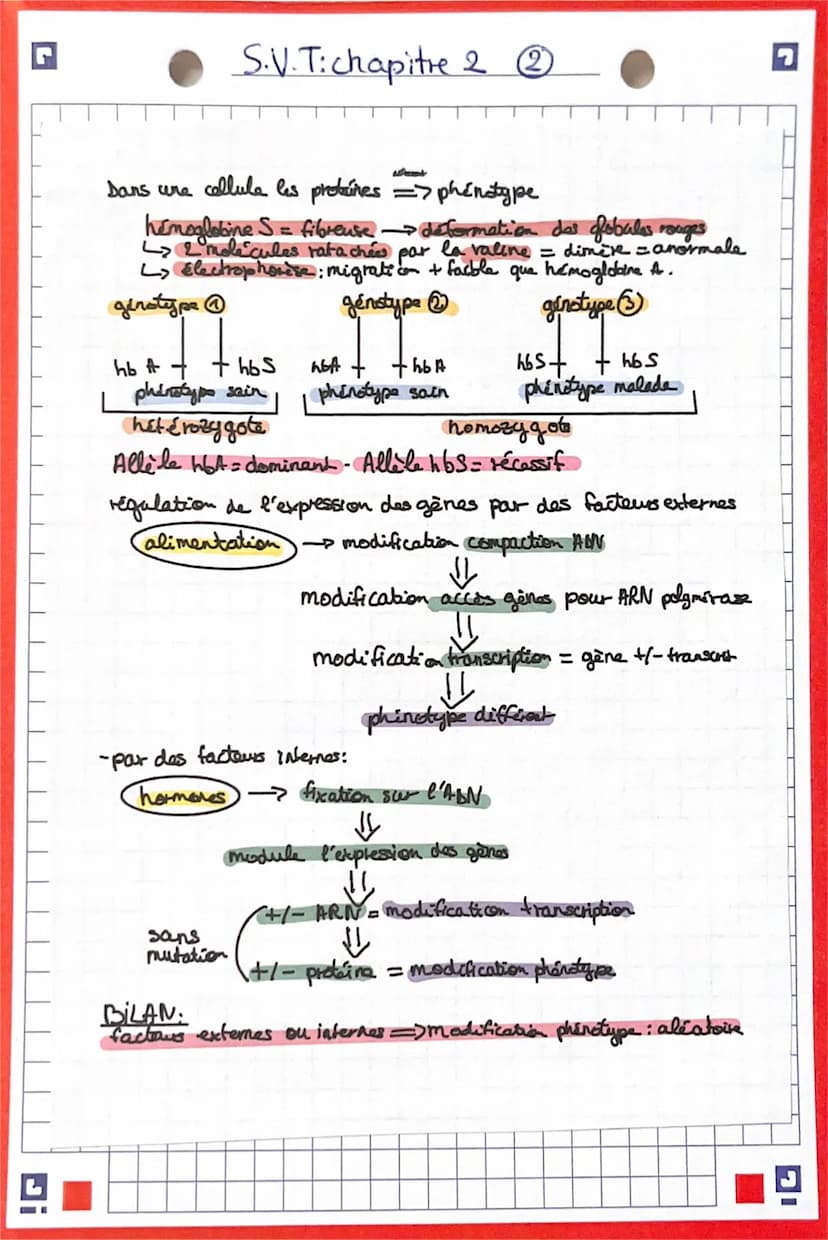 S.V.T: chapitre 2 ②
Dans une cellule les protéines => phénotype
hémoglobine S = fibreuse → déformation des globules rouges
↳ 2 molécules ratachées par la valine = dimère = anormale
↳ électrophorèse : migration + faible que hémoglobine A.
génotype ① génotype ② génotype ③
hb A hbS hbA hb A hbS hb S
phénotype sain phénotype sain phénotype malade
hétérozygote homozygote
Allèle hbA = dominant - Allèle hbS = récessif
régulation de l'expression des gènes par des facteurs externes
alimentation → modification compaction ADN
modification accès gènes pour ARN polymérase
modification transcription = gène +/- transcrit
phénotype différent
- par des facteurs internes :
hormones → fixation sur l'ADN
module l'expression des gènes
+/- ARN = modification transcription
sans
mutation
+/- protéine = modification phénotype
BILAN:
facteurs externes ou internes => modification phénotype : aléatoire